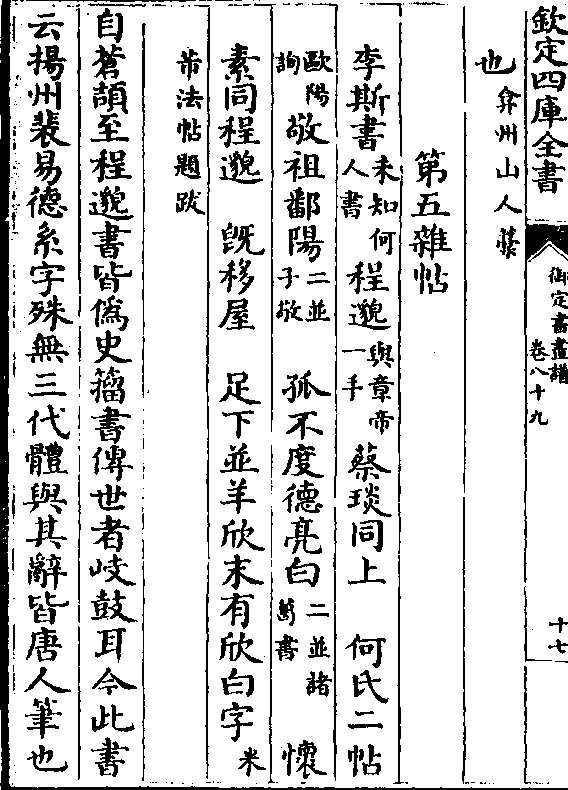 欽定四庫全書
御定書畫譜
卷八十九
十七
也弇州山人藁
第五雜帖
李斯書未知何人書 程邈與章帝一手 蔡琰同上 何氏二帖
歐陽詢 敬祖鄱陽二並子敬 孤不度德亮白二並諸葛書 懷
素同程邈 旣移屋 足下並羊欣末有欣白字米
芾法帖題跋
自蒼頡至程邈書皆僞史籀書傳世者岐鼓耳今此書
云揚州裴易德系字殊無三代體與其辭皆唐人筆也